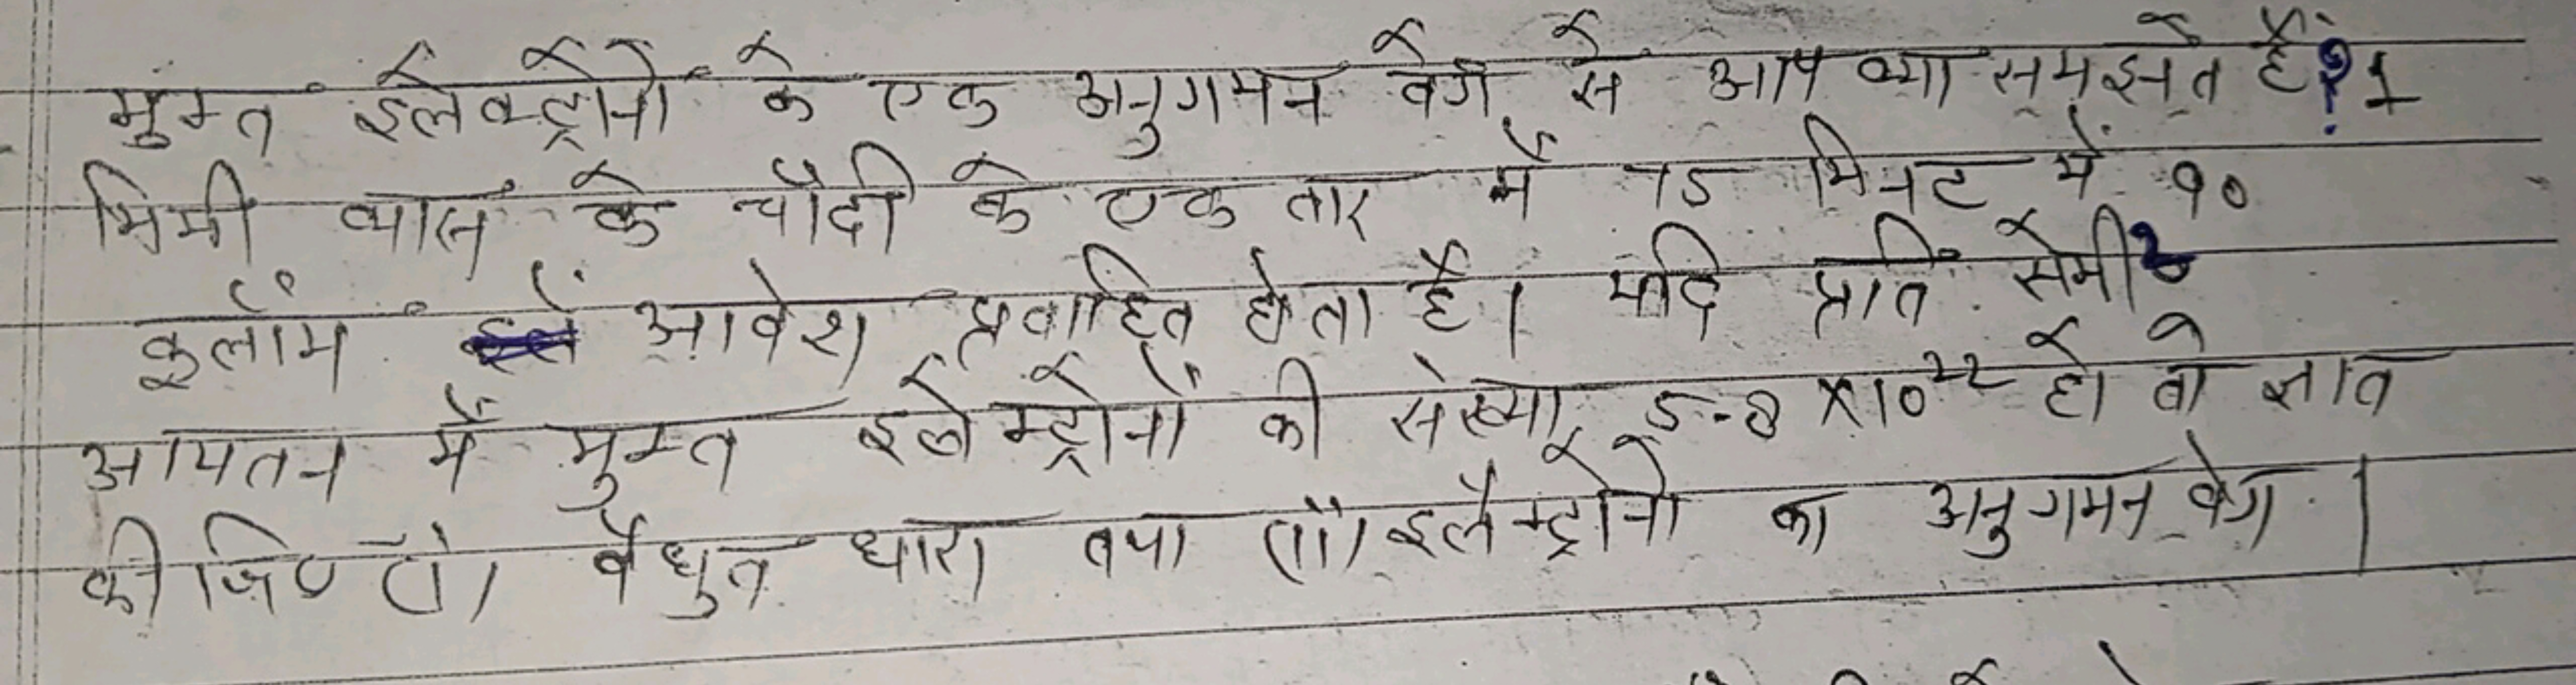 मुक्त इलेक्ट्रोनों के एक अनुगमन वेग से आप क्या समझते हैं? 1
मिमी व्यास के चाँदी के एक तार में 75 मिनट में 90
कुलॉम आवेश प्रवाहित होता है। यदि प्रति सेमी²
आयतन में मुक्त इलेक्ट्रोनों की संख्या 5-8 X10²² हो तो ज्ञात
कीजिए (i) वैधुत धारा तथा (ii) इलैक्ट्रोनो का अनुगमन वेग।